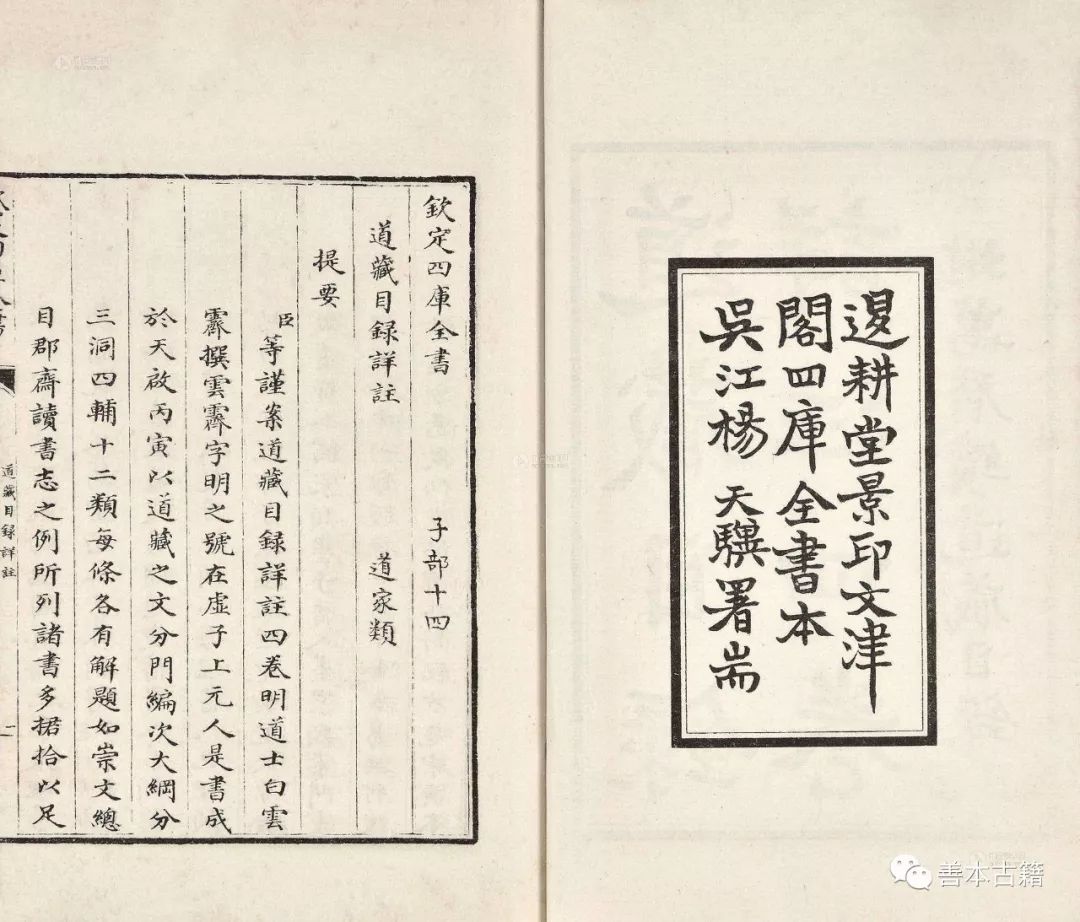 退耕堂景印文津
閣四庫全書本
吳江楊天驥署耑
欽定四庫全書 子部十四
道藏目録詳註 道家類
提要
臣等謹案道藏目録詳註四卷明道士白雲
霽撰雲霽字明之號在虛子上元人是書成
於天啟丙寅以道藏之文分門編次大綱分
三洞四輔十二類每條各有解題如崇文總
目郡齋讀書志之例所列諸書多捃拾以足
道藏目録詳註
善本古籍